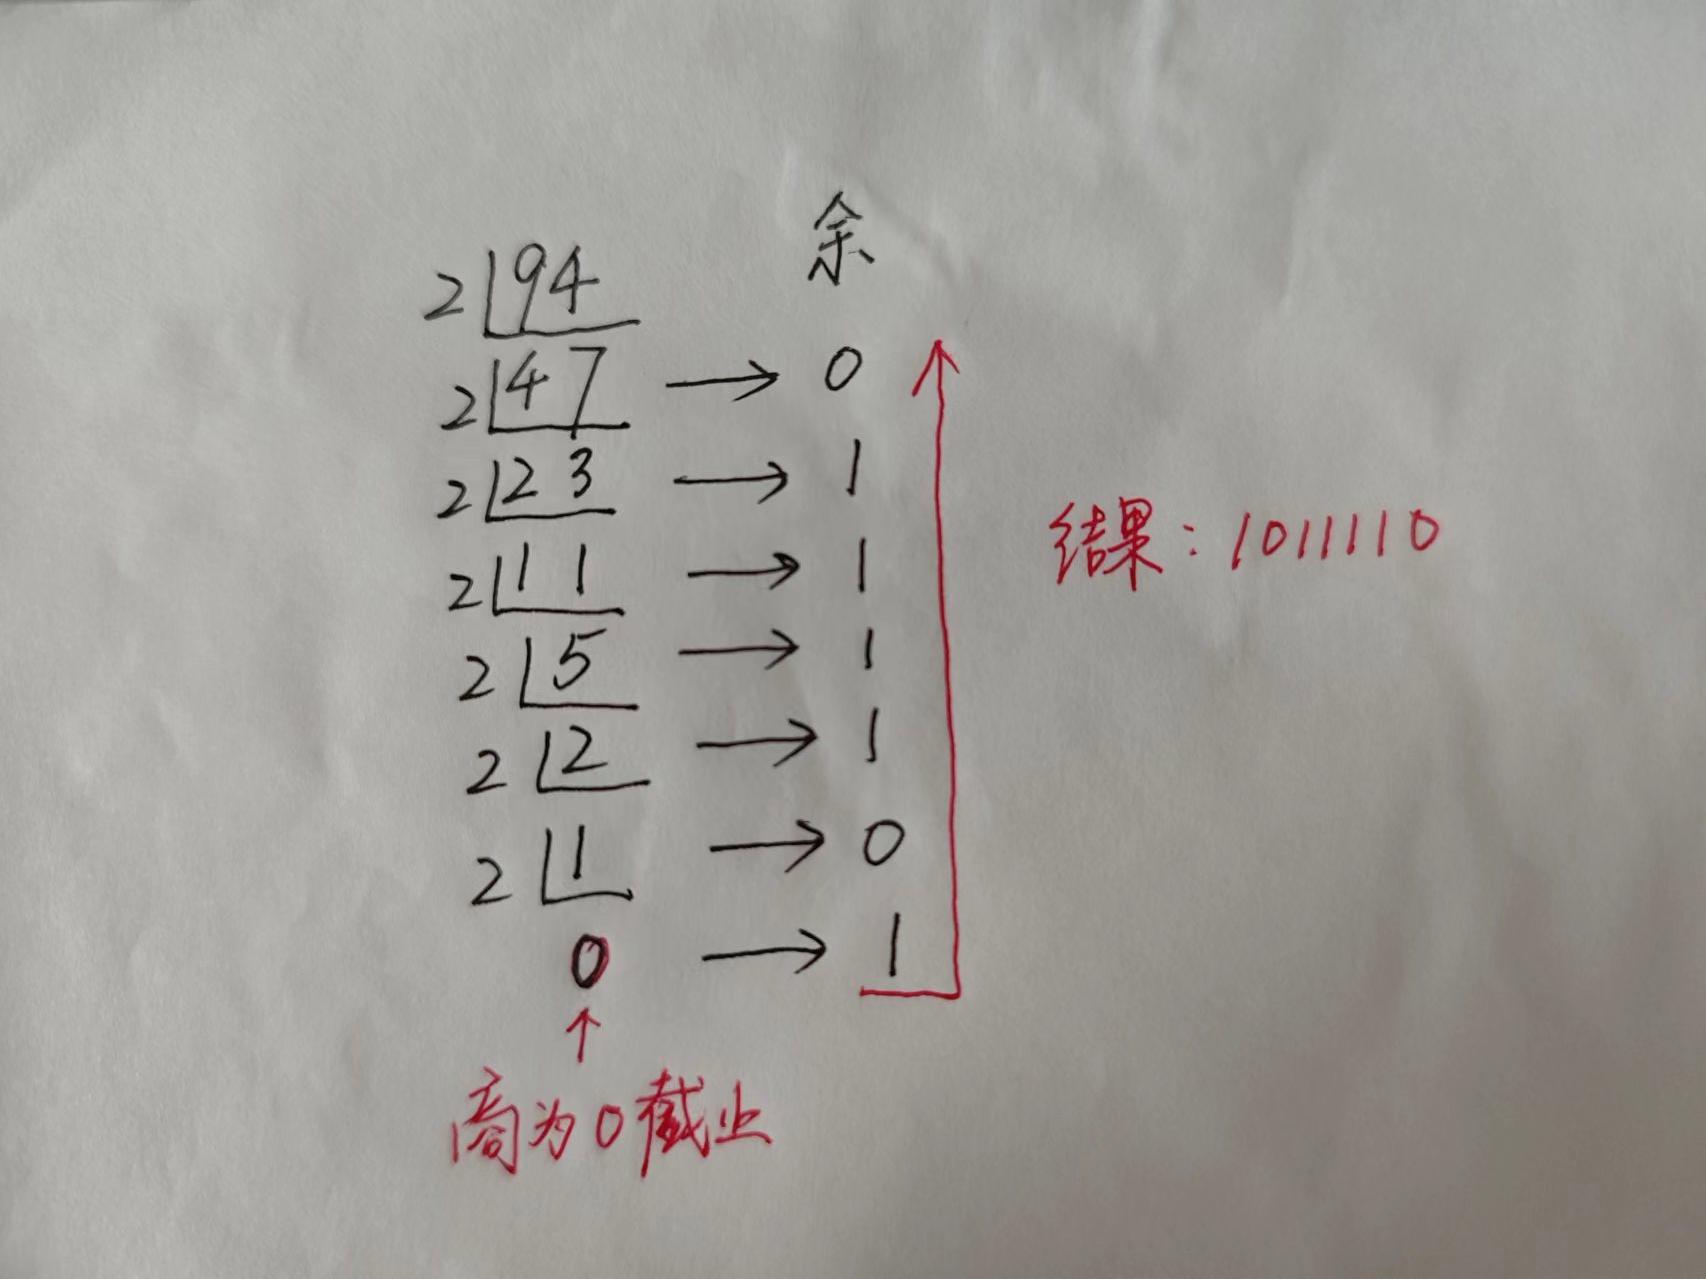 余
2 94
2 47 → 0
2 23 → 1
2 11 → 1
2 5 → 1
2 2 → 1
2 1 → 0
0 → 1
结果:1011110
商为0截止